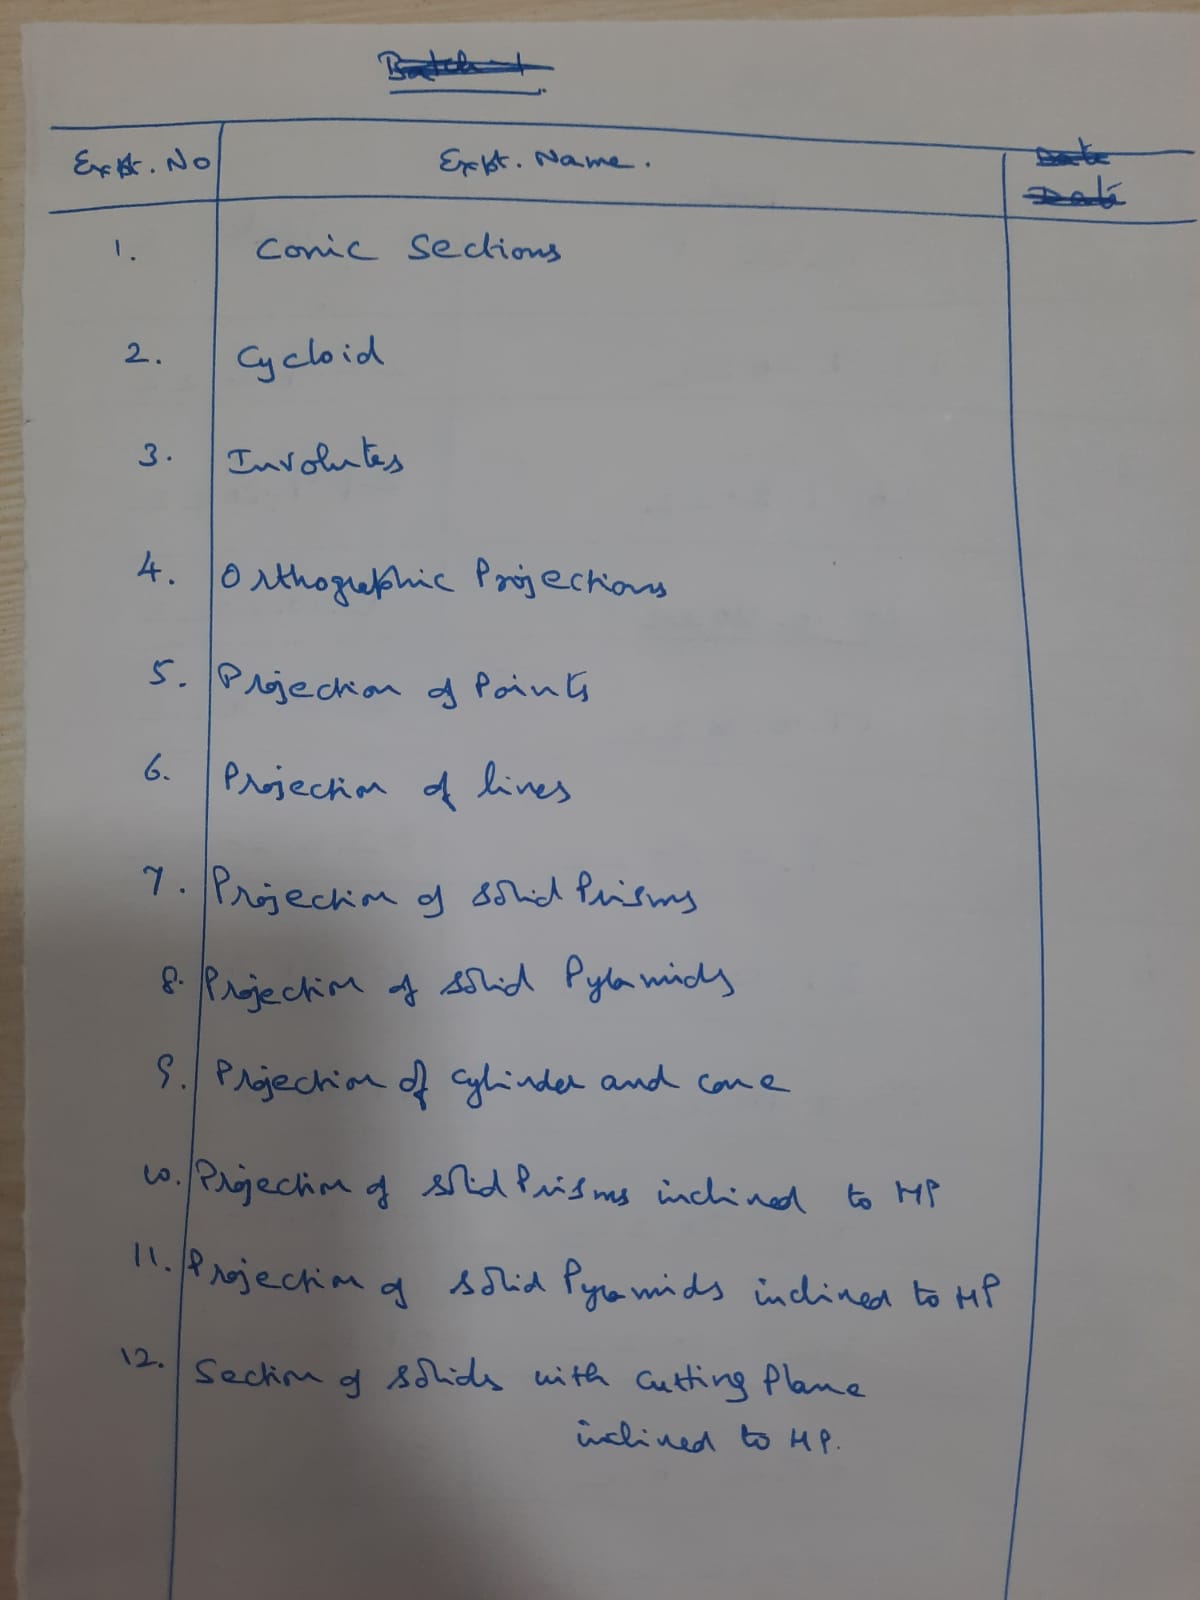 Batch 1
Expt. No Expt. Name. Date
Date
1. Conic Sections
2. Cycloid
3. Involutes
4. Orthographic Projections
5. Projection of Points
6. Projection of lines
7. Projection of solid Prisms
8. Projection of solid Pyramids
9. Projection of cylinder and cone
10. Projection of solid Prisms inclined to HP
11. Projection of solid Pyramids inclined to HP
12. Section of solids with cutting Plane
inclined to HP.